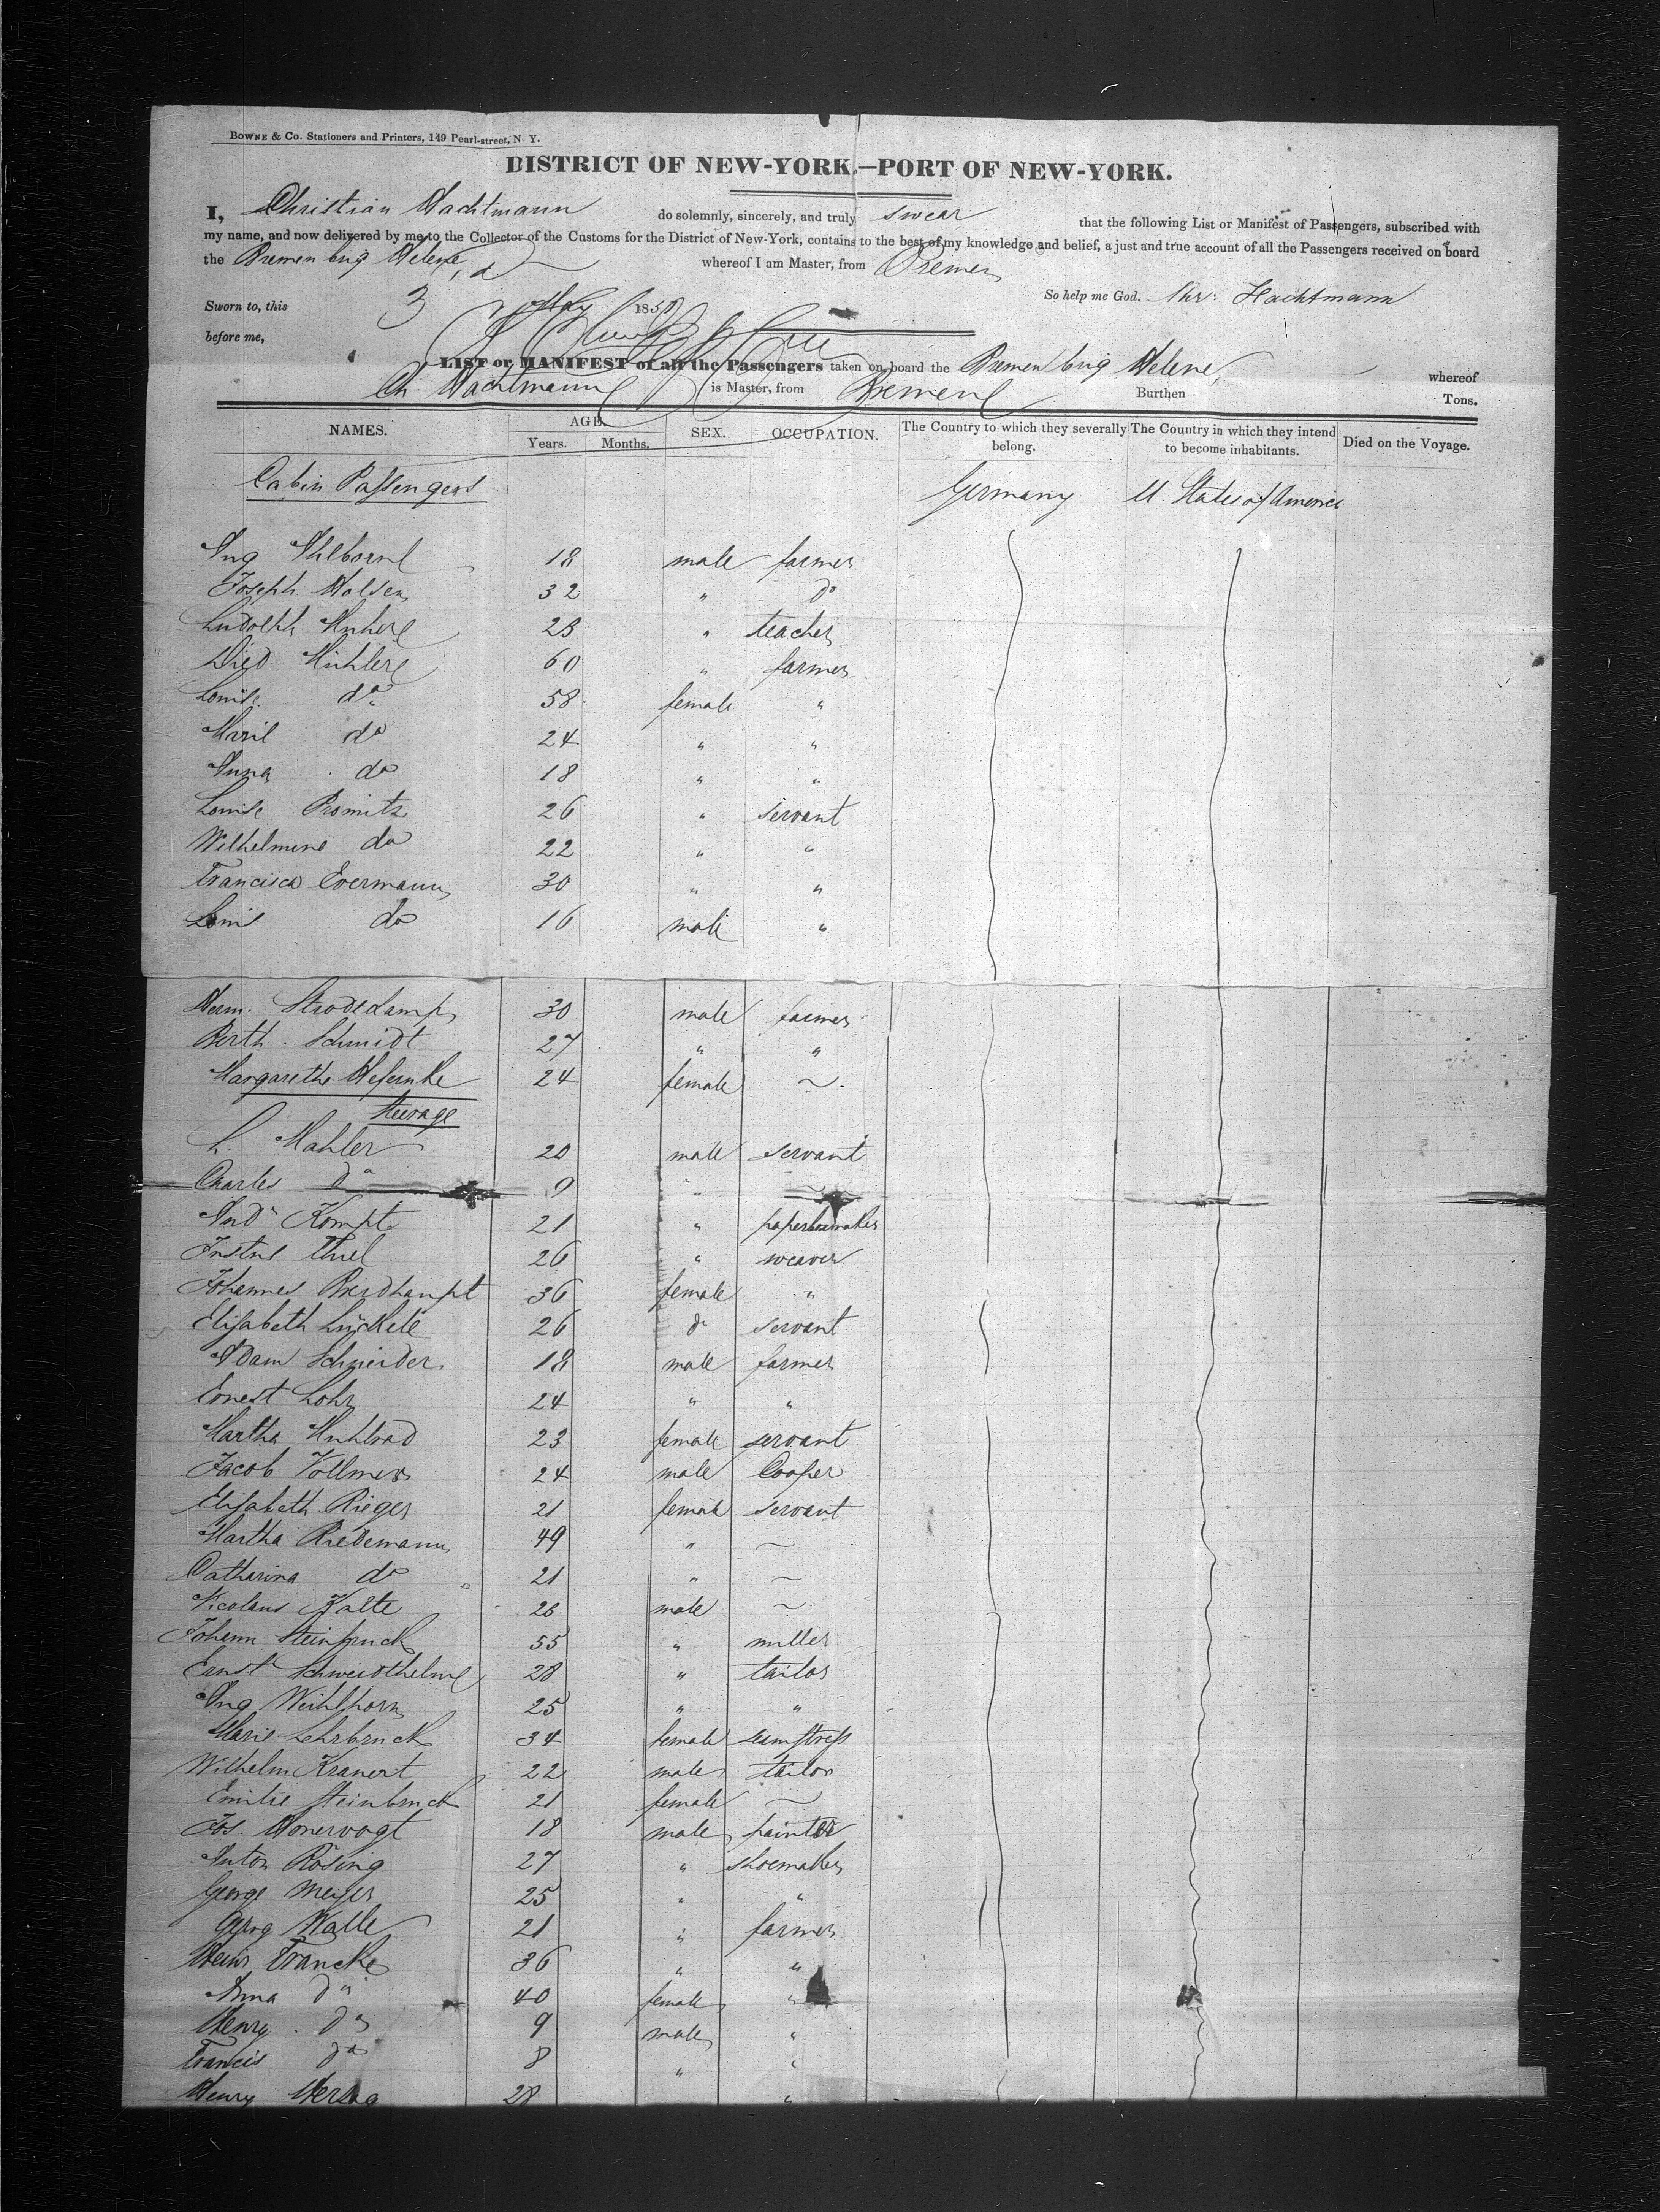 BOWNE & CO. Stationers and Printers, 149 Pearl-street, N. Y.
DISTRICT OF NEW-YORK.—PORT OF NEW-YORK.
I, Christian Hachtmann do solemnly, sincerely, and truly swear that the following List or Manifest of Passengers, subscribed with
my name, and now delivered by me to the Collector of the Customs for the District of New-York, contains to the best of my knowledge and belief, a just and true account of all the Passengers received on board
the Bremen brig Helene, whereof I am Master, from Bremen
So help me God. Chr: Hachtmann
Sworn to, this 3 May 1850
before me,
LIST or MANIFEST of all the Passengers taken on board the Bremen brig Helene, whereof
Ch. Hachtmann is Master, from Bremen Burthen Tons.
NAMES. AGE. Years. Months. SEX. OCCUPATION. The Country to which they severally belong. The Country in which they intend to become inhabitants. Died on the Voyage.
Cabin Passengers Germany U. States of America
Aug Ahlborn 18 male farmer
Joseph Holsen 32 " do
Ludolph 23 " teacher
Died 60 " farmer
Louise do 58 female "
Marie do 24 " "
Anna do 18 " "
Louise Promitz 26 " servant
Wilhelmine do 22 " "
Francisca Evermann 30 " "
Louis do 16 male "
Herm. Strodtkamp 30 male farmer
Berth. Schmidt 27 " "
Margarethe 24 female ~
Steerage
L. Mahler 20 male servant
Charles do 9 "
And. Kompt 21 "
Justus Thiel 26 " weaver
Johannes Breidhaupt 36 female "
Elisabeth 26 do servant
Adam Schneider 18 male farmer
Ernest Lohr 24 " "
Martha 23 female servant
Jacob Vollmer 24 male Cooper
Elisabeth Rieger 21 female servant
Martha Riedemann 49 " ~
Catharina do 21 " ~
Nicolaus Kalte 26 male ~
Johann Steinbruck 55 " miller
Ernst 28 " tailor
Aug 25 " "
Marie Lehrbruck 34 female seamstress
Wilhelm Kranert 22 male tailor
Emilie Steinbruck 21 female ~
Jos. 18 male painter
Anton Rösing 27 " shoemaker
George Meyer 25 " "
Georg Kalle 21 " farmer
Heinr. Francke 36 " "
Anna do 40 female "
Henry do 9 male "
Francis do 8 " "
Henry Herzog 28 "